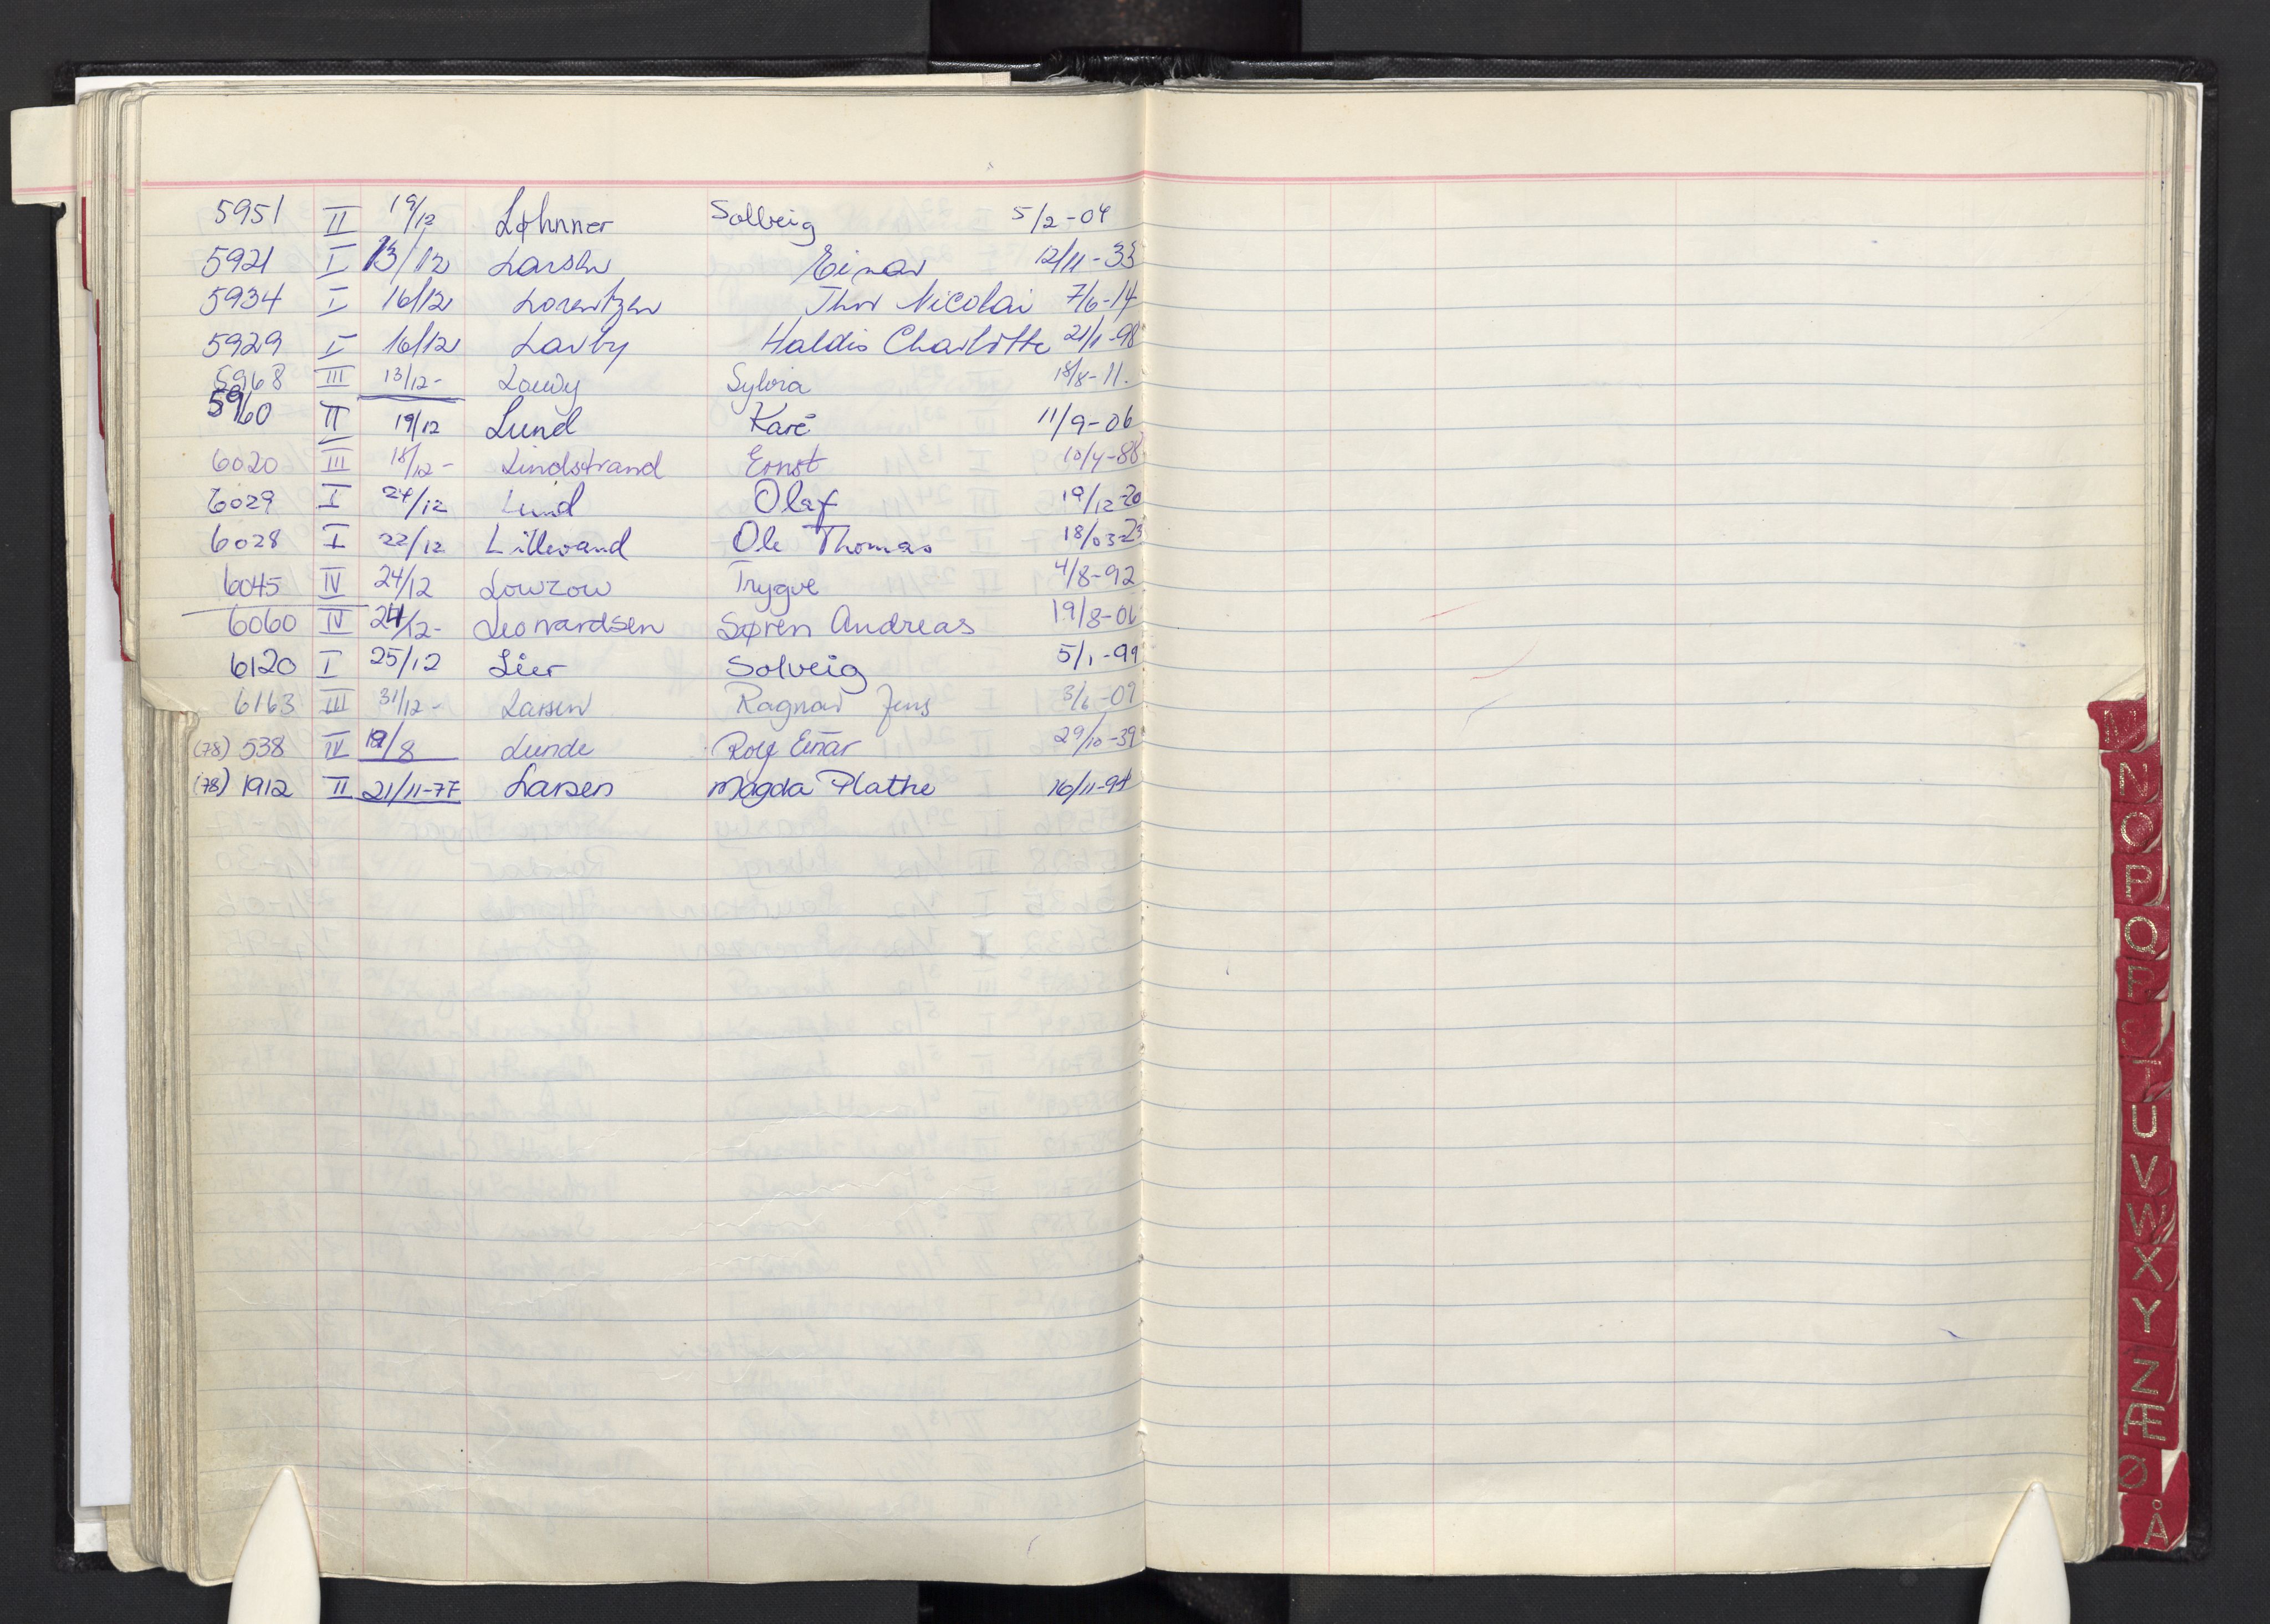 5951 II 19/12 Løhnner Solveig 5/2-04
5921 I 13/12 Larsen Einar 12/11-33
5934 I 16/12 Lorentzen Thor Nicolai 7/6-14
5929 I 16/12 Larby Haldis Charlotte 21/1-98
5968 III 13/12- Lowy Sylvia 18/8-11.
5960 II 19/12 Lund Kare 11/9-06
6020 III 18/12- Lindstrand Ernst 10/4-88
6029 I 24/12 Lund Olaf 19/12-20
6028 I 22/12 Lillevand Ole Thomas 18/03-23
6045 IV 24/12 Lowzow Trygve 4/8-92
6060 IV 24/12- Leonardsen Søren Andreas 19/8-06
6120 I 25/12 Lier Solveig 5/1-99
6163 III 31/12- Larsen Ragnar Jens 3/6-09
(78) 538 IV 19/8 Lunde Rolf Einar 29/10-39
(78) 1912 II 21/11-77 Larsen Magda Plathe 16/11-94
M
N
O
P
Q
R
S
T
U
V
W
X
Y
Z
Æ
Ø
Å